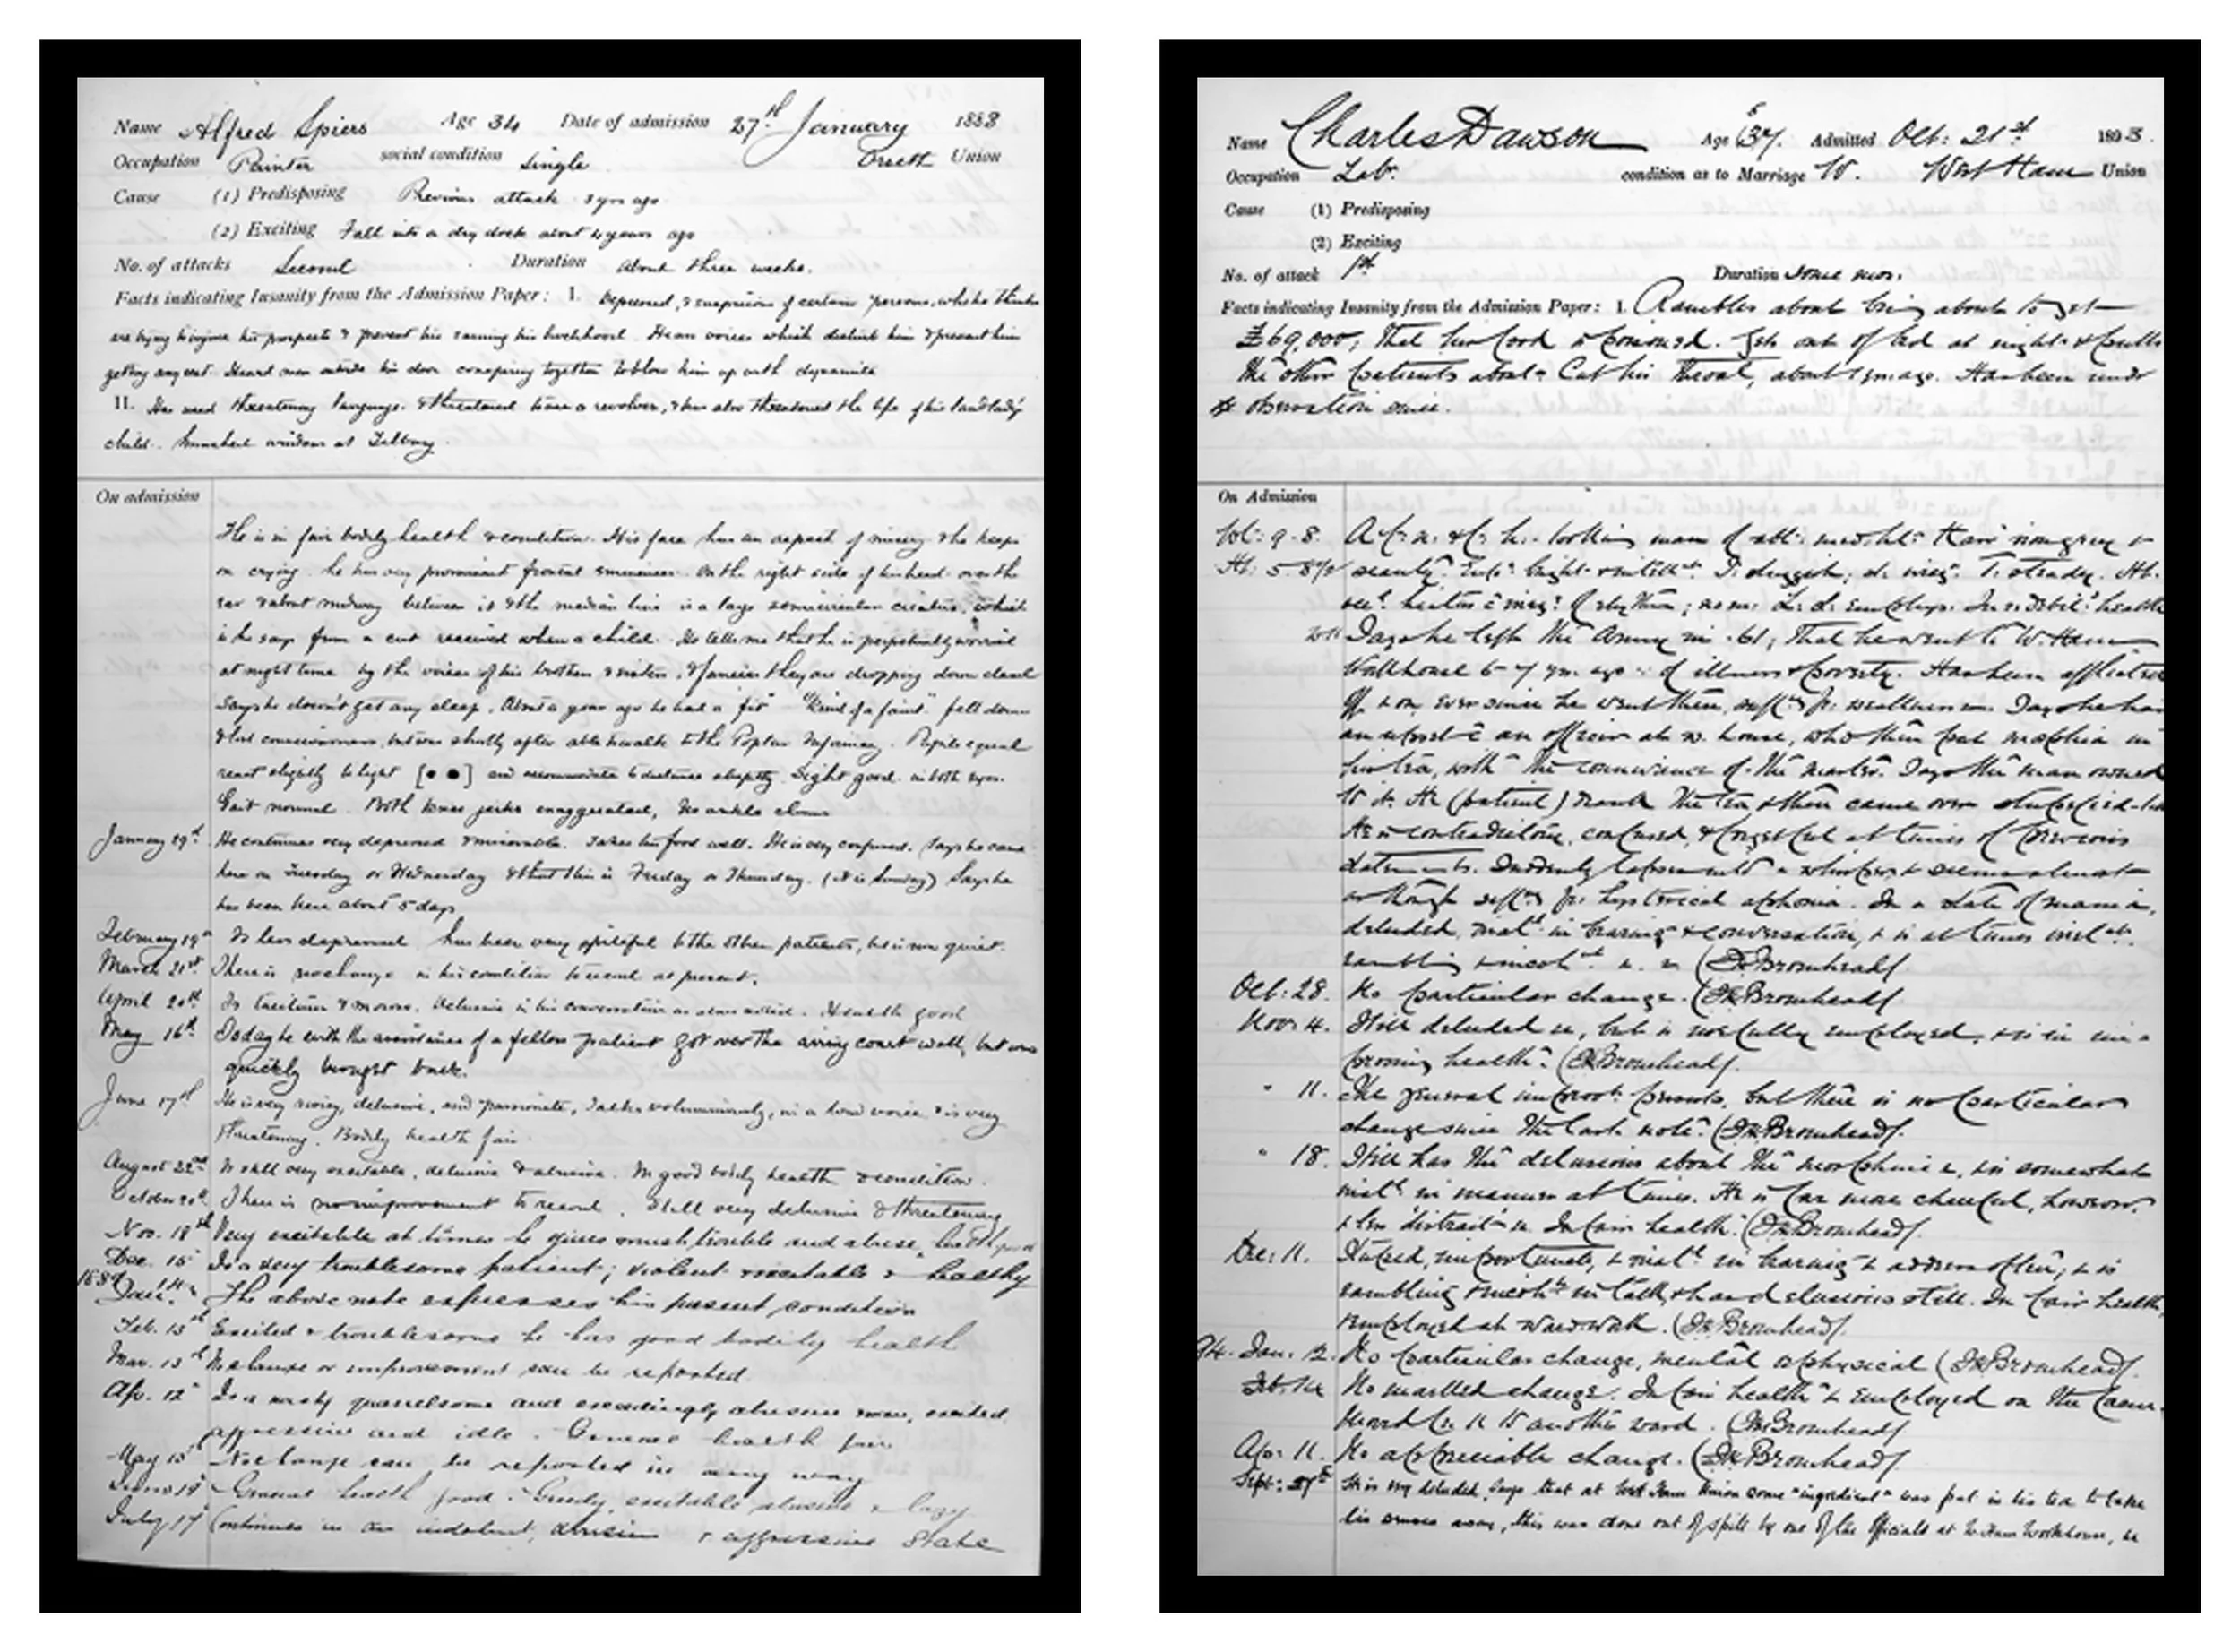 Name Alfred Spiers Age 34 Date of admission 27th January 1888
Occupation Painter social condition Single Orsett Union
Cause (1) Predisposing Previous attack 3 yrs ago
(2) Exciting Fall into a dry dock about 4 years ago
No. of attacks Second Duration About three weeks.
Facts indicating Insanity from the Admission Paper: I. Depressed, & suspicious of certain persons, who he thinks
are trying to injure his prospects & prevent his earning his livelihood. Hears voices which disturb him & prevent him
getting any rest. Heard men outside his door conspiring together to blow him up with dynamite
II. Has used threatening language. & threatened to use a revolver, & has also threatened the life of his landlady's
child. Smashed windows at Tilbury.
On admission
He is in fair bodily health & condition. His face has an aspect of misery & he keeps
on crying. he has very prominent frontal eminences. On the right side of his head over the
ear & about midway between it & the median line is a large semicircular cicatrix, which
is he says from a cut received when a child. He tells me that he is perpetually worried
at night time by the voices of his brothers & sisters, & fancies they are dropping down dead
Says he doesn't get any sleep. About a year ago he had a fit "kind of a faint" fell down
& lost consciousness, but was shortly after able to walk to the Poplar Infirmary. Pupils equal
react slightly to light [● ●] and accommodate to distance sluggishly. Sight good in both eyes.
Gait normal. Both knee jerks exaggerated, No ankle clonus
January 29th He continues very depressed & miserable. Takes his food well. He is very confused. Says he came
here on Tuesday or Wednesday & that this is Friday or Thursday. (It is Sunday) Says he
has been here about 5 days
February 19th Is less depressed has been very spiteful to the other patients, he is now quiet.
March 21st There is no change in his condition to record at present.
April 20th Is taciturn & morose. Delusive in his conversation as above noted. Health good
May 16th Today he with the assistance of a fellow patient got over the airing court wall, but was
quickly brought back.
June 17th He is very noisy, delusive, and passionate, Talks voluminously, in a loud voice & is very
threatening. Bodily health fair.
August 22nd Is still very excitable, delusive & abusive. In good bodily health & condition.
October 20th There is no improvement to record. Still very delusive & threatening
Nov. 18th Very excitable at times he gives much trouble and abuse, health good
Dec. 15 Is a very troublesome patient; violent excitable & healthy
1889 Jan. 14th The above note expresses his present condition
Feb. 13th Excited & troublesome he has good bodily health
Mar. 13th No change or improvement can be reported
Ap. 12 Is a nasty quarrelsome and exceedingly abusive man, excited,
aggressive and idle. General health fair
May 15th No change can be reported in any way
June 19 General health good. Greedy, excitable abusive & lazy
July 17 Continues in an indolent, abusive & aggressive State
Name Charles Dawson Age 37. Admitted Oct: 21st 1893.
Occupation Labr. condition as to Marriage W. West Ham Union
Cause (1) Predisposing
(2) Exciting
No. of attack 1st Duration Some mos.
Facts indicating Insanity from the Admission Paper: I. Rambles about being about to get
£69,000; That his food is poisoned. Gets out of bed at night & pulls
the other patients about. Cut his Throat, about 1 yr. ago. Has been under
observation since.
On Admission
Wt: 9-8. looking man of Hair iron grey &
Ht: 5-8½ scanty. bright
Says he left the Army in '61; That he went to W. Ham
Workhouse 6-7 yrs. ago of illness & poverty. Has been afflicted
off & on ever since he went there, Says he had
an upset an officer at w. house, who then put morphia in
his tea, with the connivance of the master. Says the man owned
to it. He (patient) drank the tea & then came over
He is contradictory, confused, & forgetful at times of previous
statements. Suddenly lapses into a whisper & seems almost
as though hysterical aphonia. In a state of mania,
deluded, in bearing & conversation, & is at times
rambling & (Dr. Bromhead).
Oct: 28. No particular change. (Dr. Bromhead).
Nov: 4. Still deluded but is usefully employed, & is in im=
proving health. (Dr. Bromhead).
" 11. The general persists, but there is no particular
change since the last note. (Dr. Bromhead).
" 18. Still has the delusions about the morphine & is somewhat
in manner at times. He is far more cheerful, however,
& less 'distrait' In fair health. (Dr. Bromhead).
Dec: 11. importunate, & in bearing & address often; & is
rambling in talk, & has delusions still. In fair health,
& employed at ward-work. (Dr. Bromhead).
94. Jan. 12. No particular change, mental or physical (Dr. Bromhead).
Feb. 14 No marked change. In fair health & Employed on the Farm.
Moved to another ward. (Dr. Bromhead).
Apr: 11. No appreciable change. (Dr. Bromhead).
Sept: 27th He is very deluded, Says that at West Ham Union some "ingredient" was put in his tea to take
his senses away, this was done out of spite by one of the officials at W. Ham Workhouse, he